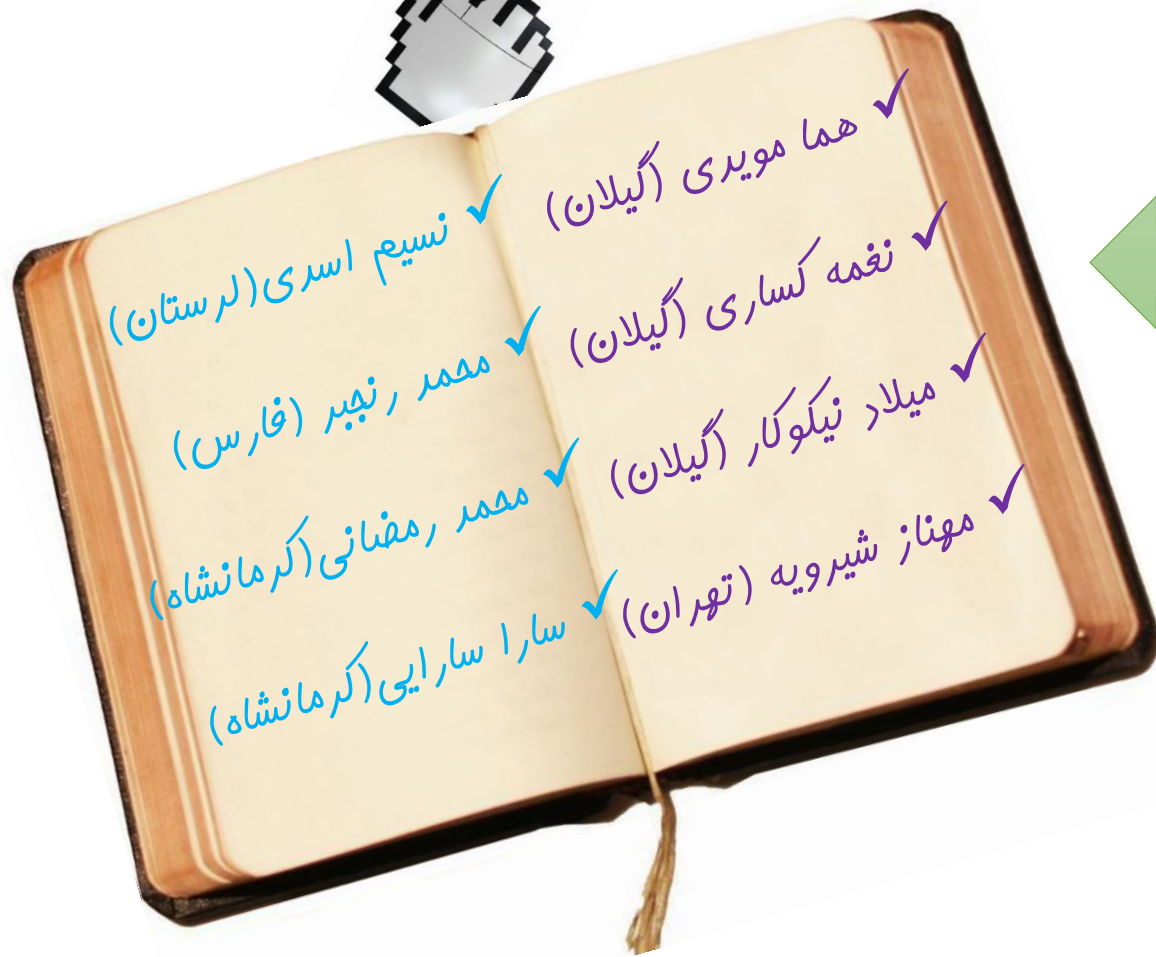 ✓ هما مویدی (گیلان)
✓ نغمه کساری (گیلان)
✓ میلاد نیکوکار (گیلان)
✓ مهناز شیرویه (تهران)
✓ نسیم اسدی(لرستان)
✓ محمد رنجبر (فارس)
✓ محمد رمضانی(کرمانشاه)
✓ سارا سارایی(کرمانشاه)